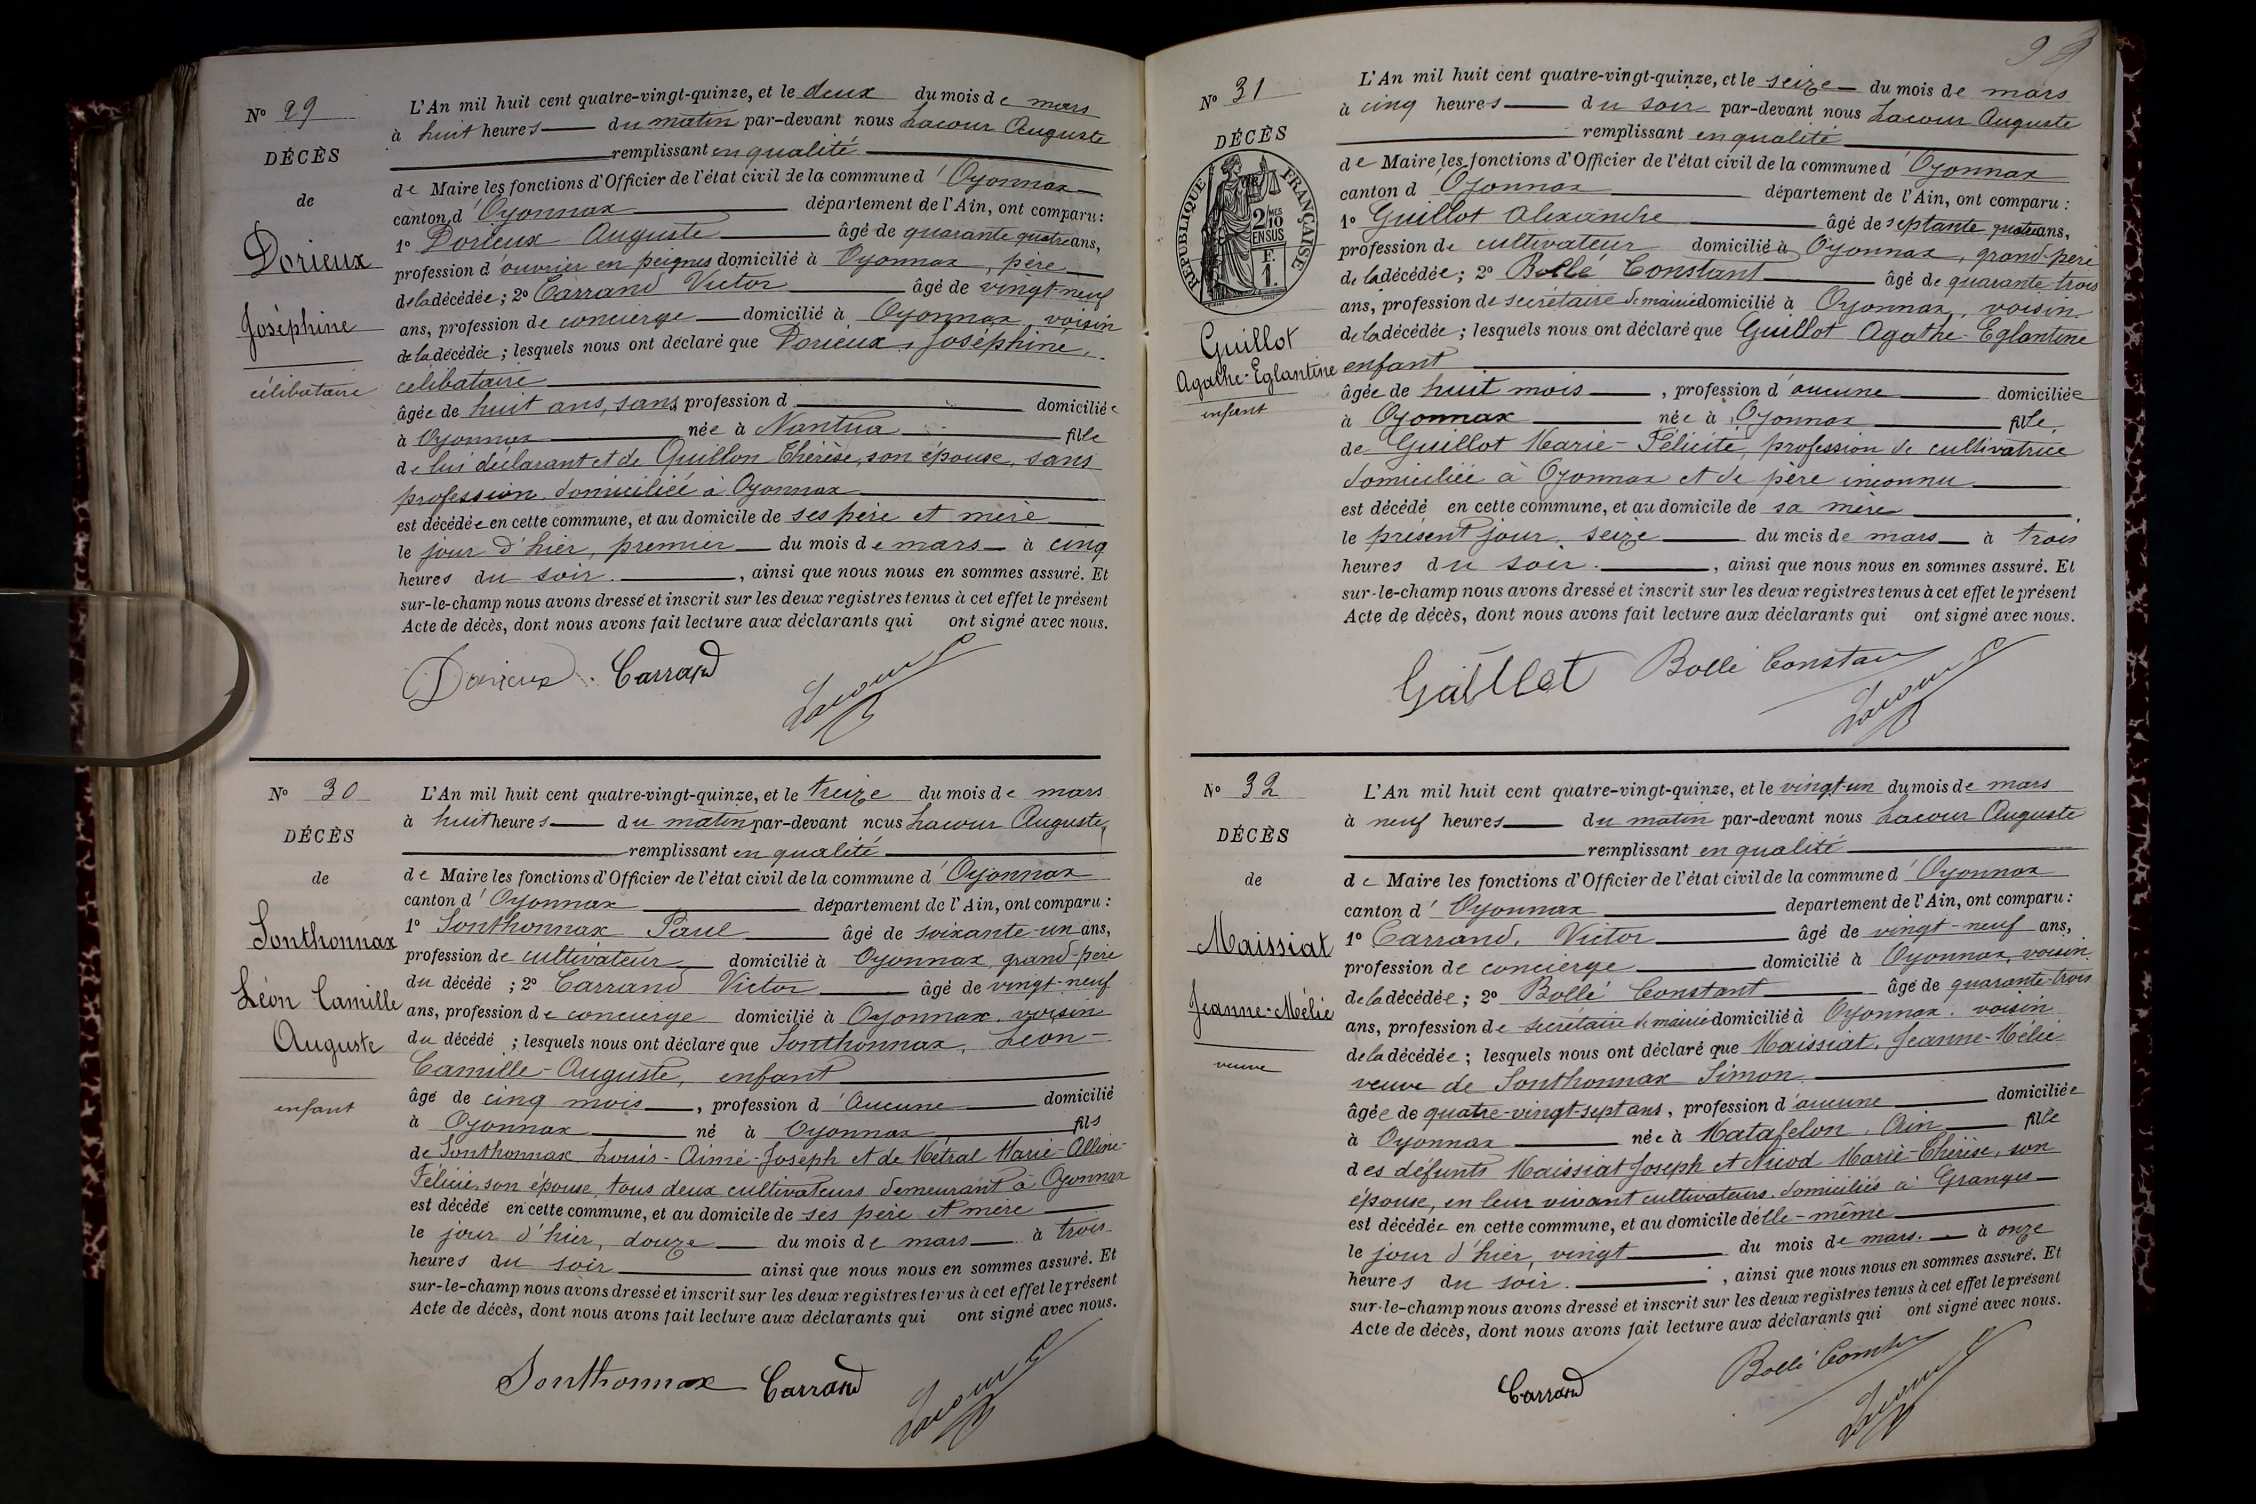 Nº 29
DÉCÈS
de
Dorieux
Joséphine
célibataire
L'An mil huit cent quatre-vingt-quinze, et le deux du mois de mars
à huit heures du matin par-devant nous Lacour Auguste
remplissant en qualité
de Maire les fonctions d'Officier de l'état civil de la commune d'Oyonnax
canton d'Oyonnax département de l'Ain, ont comparu :
1º Dorieux Auguste âgé de quarante quatre ans,
profession d'ouvrier en peignes domicilié à Oyonnax, père
de la décédée ; 2º Carrand Victor âgé de vingt-neuf
ans, profession de concierge domicilié à Oyonnax, voisin
de la décédée ; lesquels nous ont déclaré que Dorieux, Joséphine,
célibataire
âgée de huit ans, sans profession d domiciliée
à Oyonnax née à Nantua fille
de lui déclarant et de Guillon Thérèse, son épouse, sans
profession, domiciliée à Oyonnax
est décédée en cette commune, et au domicile de ses père et mère
le jour d'hier, premier du mois de mars à cinq
heures du soir, ainsi que nous nous en sommes assuré. Et
sur-le-champ nous avons dressé et inscrit sur les deux registres tenus à cet effet le présent
Acte de décès, dont nous avons fait lecture aux déclarants qui ont signé avec nous.
Dorieux Carrand Lacour
Nº 30
DÉCÈS
de
Sonthonnax
Léon Camille
Auguste
enfant
L'An mil huit cent quatre-vingt-quinze, et le treize du mois de mars
à huit heures du matin par-devant nous Lacour Auguste,
remplissant en qualité
de Maire les fonctions d'Officier de l'état civil de la commune d'Oyonnax
canton d'Oyonnax département de l'Ain, ont comparu :
1º Sonthonnax Paul âgé de soixante-un ans,
profession de cultivateur domicilié à Oyonnax, grand-père
du décédé ; 2º Carrand Victor âgé de vingt-neuf
ans, profession de concierge domicilié à Oyonnax, voisin
du décédé ; lesquels nous ont déclaré que Sonthonnax, Léon-
Camille-Auguste, enfant
âgé de cinq mois, profession d'Aucune domicilié
à Oyonnax né à Oyonnax fils
de Sonthonnax Louis-Aimé-Joseph et de Métral Marie-Alline-
Félicie, son épouse, tous deux cultivateurs demeurant à Oyonnax
est décédé en cette commune, et au domicile de ses père et mère
le jour d'hier, douze du mois de mars à trois
heures du soir ainsi que nous nous en sommes assuré. Et
sur-le-champ nous avons dressé et inscrit sur les deux registres tenus à cet effet le présent
Acte de décès, dont nous avons fait lecture aux déclarants qui ont signé avec nous.
Sonthonnax Carrand Lacour
Nº 31
DÉCÈS
RÉPUBLIQUE FRANÇAISE
2 MES 10
EN SUS
F.
1.
Guillot
Agathe-Eglantine
enfant
L'An mil huit cent quatre-vingt-quinze, et le seize du mois de mars
à cinq heures du soir par-devant nous Lacour Auguste
remplissant en qualité
de Maire les fonctions d'Officier de l'état civil de la commune d'Oyonnax
canton d'Oyonnax département de l'Ain, ont comparu :
1º Guillot Alexandre âgé de septante quatre ans,
profession de cultivateur domicilié à Oyonnax, grand-père
de la décédée ; 2º Bollé Constant âgé de quarante-trois
ans, profession de secrétaire de mairie domicilié à Oyonnax, voisin
de la décédée ; lesquels nous ont déclaré que Guillot Agathe-Eglantine
enfant
âgée de huit mois, profession d'aucune domiciliée
à Oyonnax née à Oyonnax fille
de Guillot Marie-Félicité, profession de cultivatrice
domiciliée à Oyonnax et de père inconnu
est décédé en cette commune, et au domicile de sa mère
le présent jour, seize du mois de mars à trois
heures du soir, ainsi que nous nous en sommes assuré. Et
sur-le-champ nous avons dressé et inscrit sur les deux registres tenus à cet effet le présent
Acte de décès, dont nous avons fait lecture aux déclarants qui ont signé avec nous.
Guillot Bollé Constant Lacour
Nº 32
DÉCÈS
de
Maissiat
Jeanne-Mélie
veuve
L'An mil huit cent quatre-vingt-quinze, et le vingt-un du mois de mars
à neuf heures du matin par-devant nous Lacour Auguste
remplissant en qualité
de Maire les fonctions d'Officier de l'état civil de la commune d'Oyonnax
canton d'Oyonnax departement de l'Ain, ont comparu :
1º Carrand, Victor âgé de vingt-neuf ans,
profession de concierge domicilié à Oyonnax, voisin
de la décédée ; 2º Bollé Constant âgé de quarante-trois
ans, profession de secrétaire de mairie domicilié à Oyonnax, voisin
de la décédée ; lesquels nous ont déclaré que Maissiat, Jeanne-Mélie
veuve de Sonthonnax Simon
âgée de quatre-vingt-sept ans, profession d'aucune domiciliée
à Oyonnax née à Matafelon, Ain fille
des défunts Maissiat Joseph et Nicod Marie-Thérèse, son
épouse, en leur vivant cultivateurs domiciliés à Granges
est décédée en cette commune, et au domicile d'elle-même
le jour d'hier, vingt du mois de mars à onze
heures du soir, ainsi que nous nous en sommes assuré. Et
sur-le-champ nous avons dressé et inscrit sur les deux registres tenus à cet effet le présent
Acte de décès, dont nous avons fait lecture aux déclarants qui ont signé avec nous.
Carrand Bollé Constant Lacour